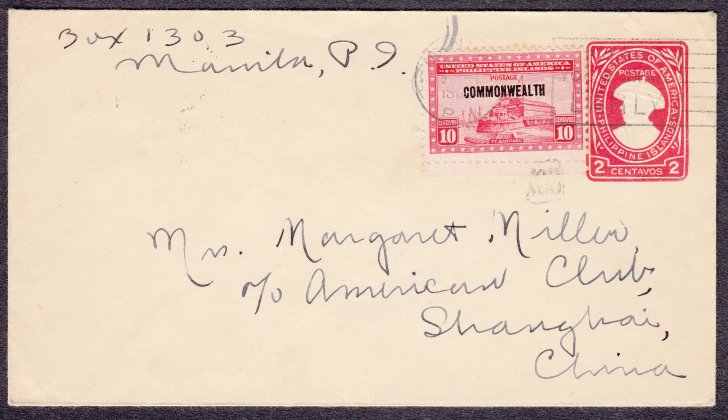 Box 1303
Manila, P.I.
UNITED STATES OF AMERICA
PHILIPPINE ISLANDS
POSTAGE
COMMONWEALTH
CENTAVOS 10 10 CENTAVOS
FT. SANTIAGO
UNITED STATES OF AMERICA
POSTAGE
PHILIPPINE ISLANDS
2 CENTAVOS 2
Mrs. Margaret Miller,
c/o American Club,
Shanghai,
China